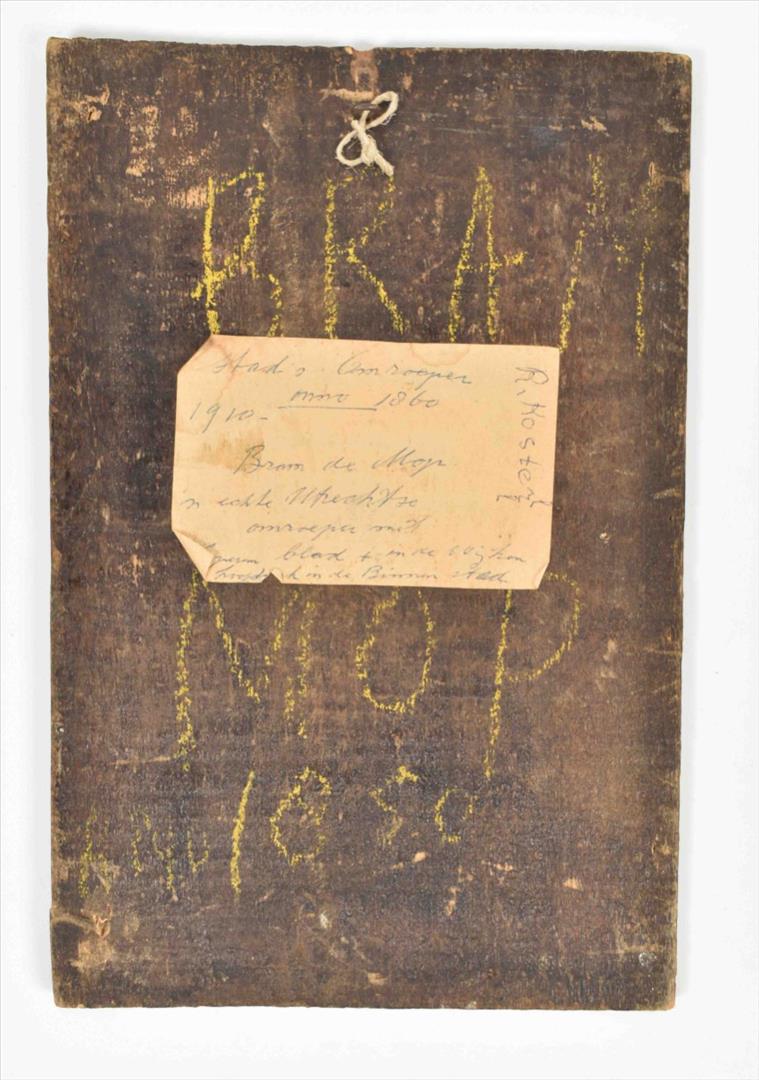 BRAM
Stads Omroeper
anno 1860
1910-
Bram de Mop
'n echte Utrechtse
omroeper met
blad + in de wijken
in de Binnen stad
R. Koster
MOP
18